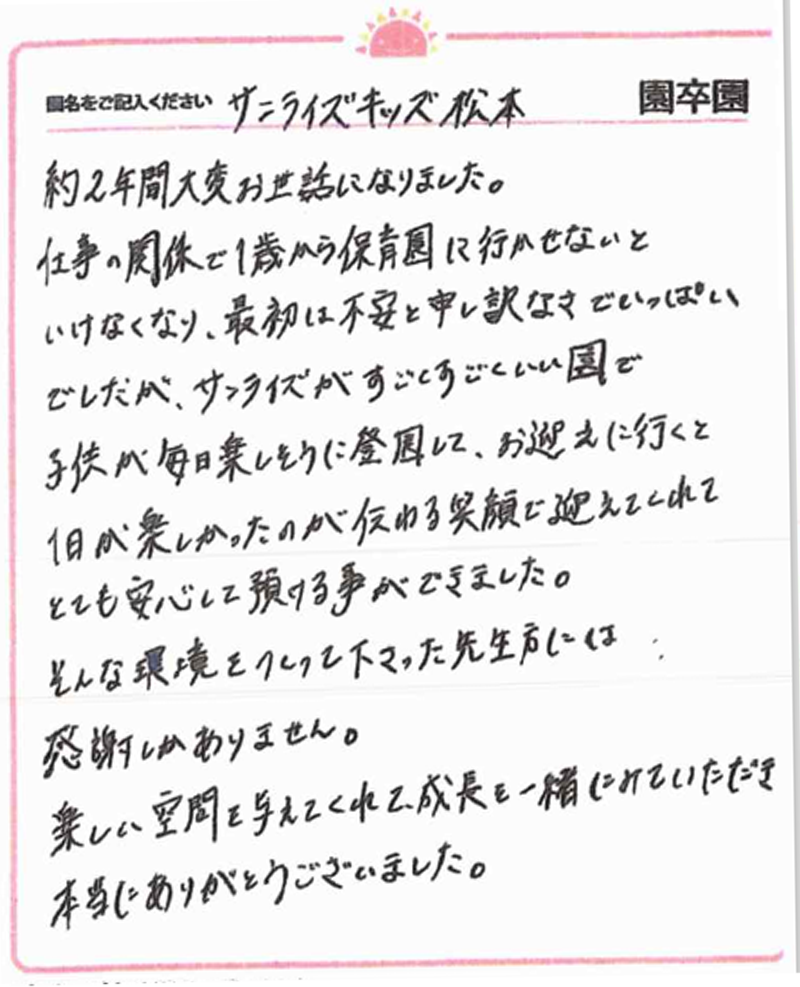 園名をご記入ください サンライズキッズ松本 園卒園
約2年間大変お世話になりました。
仕事の関係で1歳から保育園に行かせないと
いけなくなり、最初は不安と申し訳なさでいっぱい
でしたが、サンライズがすごくすごくいい園で
子供が毎日楽しそうに登園して、お迎えに行くと
1日が楽しかったのが伝わる笑顔で迎えてくれて
とても安心して預ける事ができました。
そんな環境をつくって下さった先生方には
感謝しかありません。
楽しい空間を与えてくれて、成長を一緒にみていただき
本当にありがとうございました。